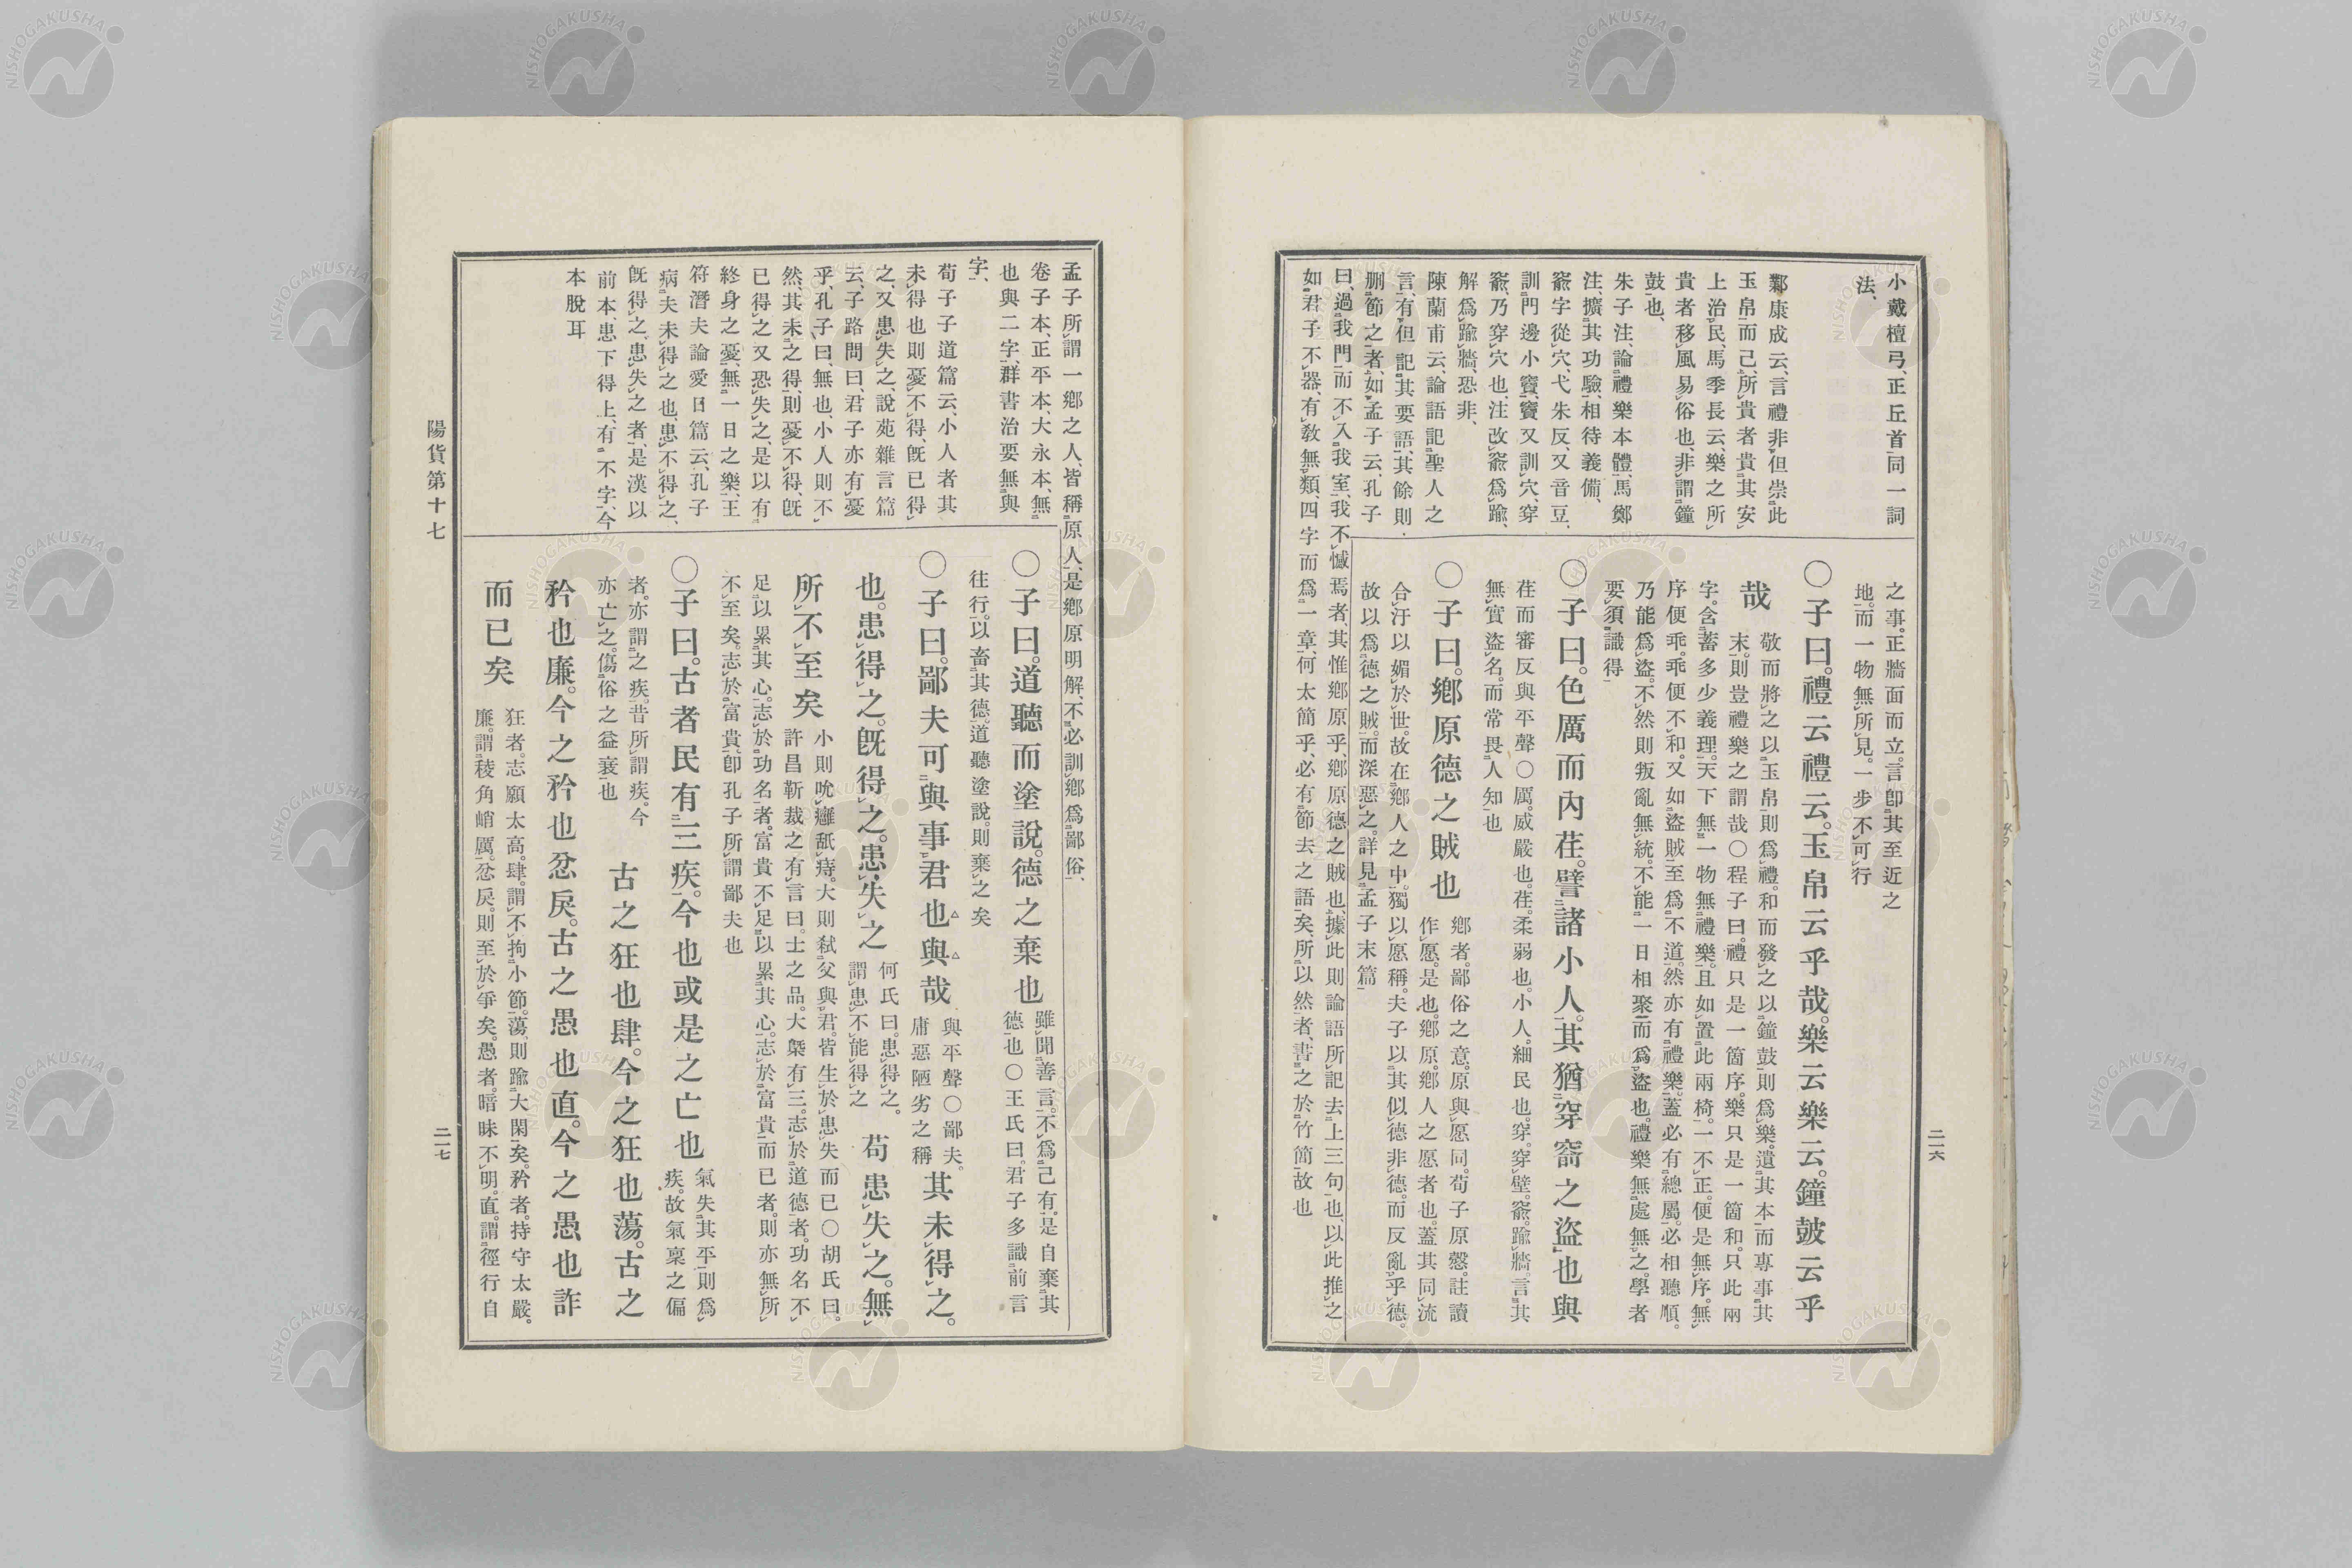 小戴檀弓、正丘首、同一詞
法、
鄭康成云、言禮非但崇此
玉帛而已、所貴者貴其安
上治民、馬季長云、樂之所
貴者移風易俗也、非謂鐘
鼓也、
朱子注、論禮樂本體、馬鄭
注、擴其功驗、相待義備、
窬字從穴、弋朱反、又音豆、
訓門邊小竇、竇又訓穴、穿
窬、乃穿穴也、注改窬爲踰、
解爲踰牆、恐非、
陳蘭甫云、論語記聖人之
言、有但記其要語、其餘則
刪節之者、如孟子云、孔子
曰、過我門而不入我室、我不憾焉者、其惟鄉原乎、鄉原德之賊也、據此則論語所記去上三句也、以此推之
如君子不器、有敎無類、四字而爲一章、何太簡乎、必有節去之語矣、所以然者、書之於竹簡故也
之事。正牆面而立。言卽其至近之
地。而一物無所見。一步不可行
○子曰。禮云禮云。玉帛云乎哉。樂云樂云。鐘鼓云乎
哉
敬而將之以玉帛則爲禮。和而發之以鐘鼓則爲樂。遺其本而專事其
末。則豈禮樂之謂哉○程子曰。禮只是一箇序。樂只是一箇和。只此兩
字。含蓄多少義理。天下無一物無禮樂。且如置此兩椅。一不正。便是無序。無
序便乖。乖便不和。又如盜賊至爲不道。然亦有禮樂。蓋必有總屬。必相聽順。
乃能爲盜。不然則叛亂無統。不能一日相聚而爲盜也。禮樂無處無之。學者
要須識得
○子曰。色厲而內荏。譬諸小人。其猶穿窬之盜也與
荏而審反與平聲○厲。威嚴也。荏。柔弱也。小人。細民也。穿。穿壁。窬。踰牆。言其
無實盜名。而常畏人知也
○子曰。鄉原德之賊也
鄉者。鄙俗之意。原與愿同。荀子原愨。註讀
作愿。是也。鄉原。鄉人之愿者也。蓋其同流
合汙以媚於世。故在鄉人之中。獨以愿稱。夫子以其似德非德。而反亂乎德。
故以爲德之賊。而深惡之。詳見孟子末篇
二一六
孟子所謂一鄉之人、皆稱原人、是鄉原明解、不必訓鄉爲鄙俗、
卷子本、正平本、大永本、無
也與二字、群書治要無與
字、
荀子子道篇云、小人者其
未得也則憂不得、旣已得
之、又患失之、說苑雜言篇
云、子路問曰、君子亦有憂
乎、孔子曰、無也、小人則不
然、其未之得、則憂不得、旣
已得之又恐失之、是以有
終身之憂、無一日之樂、王
符潛夫論愛日篇云、孔子
病夫未得之也、患不得之、
旣得之、患失之者、是漢以
前本、患下得上、有不字、今
本脫耳
○子曰。道聽而塗說。德之棄也
雖聞善言。不爲己有。是自棄其
德也○王氏曰。君子多識前言
往行。以畜其德。道聽塗說。則棄之矣
○子曰。鄙夫可與事君也與哉
與平聲○鄙夫。
庸惡陋劣之稱
其未得之。
也。患得之。旣得之。患失之
何氏曰。患得之。
謂患不能得之
苟患失之。無
所不至矣
小則吮癰舐痔。大則弑父與君。皆生於患失而已○胡氏曰。
許昌靳裁之有言曰。士之品。大槩有三。志於道德者。功名不
足以累其心。志於功名者。富貴不足以累其心。志於富貴而已者。則亦無所
不至矣。志於富貴。卽孔子所謂鄙夫也
○子曰。古者民有三疾。今也或是之亡也
氣失其平則爲
疾。故氣稟之偏
者。亦謂之疾。昔所謂疾。今
亦亡之。傷俗之益衰也
古之狂也肆。今之狂也蕩。古之
矜也廉。今之矜也忿戾。古之愚也直。今之愚也詐
而已矣
狂者。志願太高。肆。謂不拘小節。蕩。則踰大閑矣。矜者。持守太嚴。
廉。謂稜角峭厲。忿戾。則至於爭矣。愚者。暗昧不明。直。謂徑行自
陽貨第十七
二一七